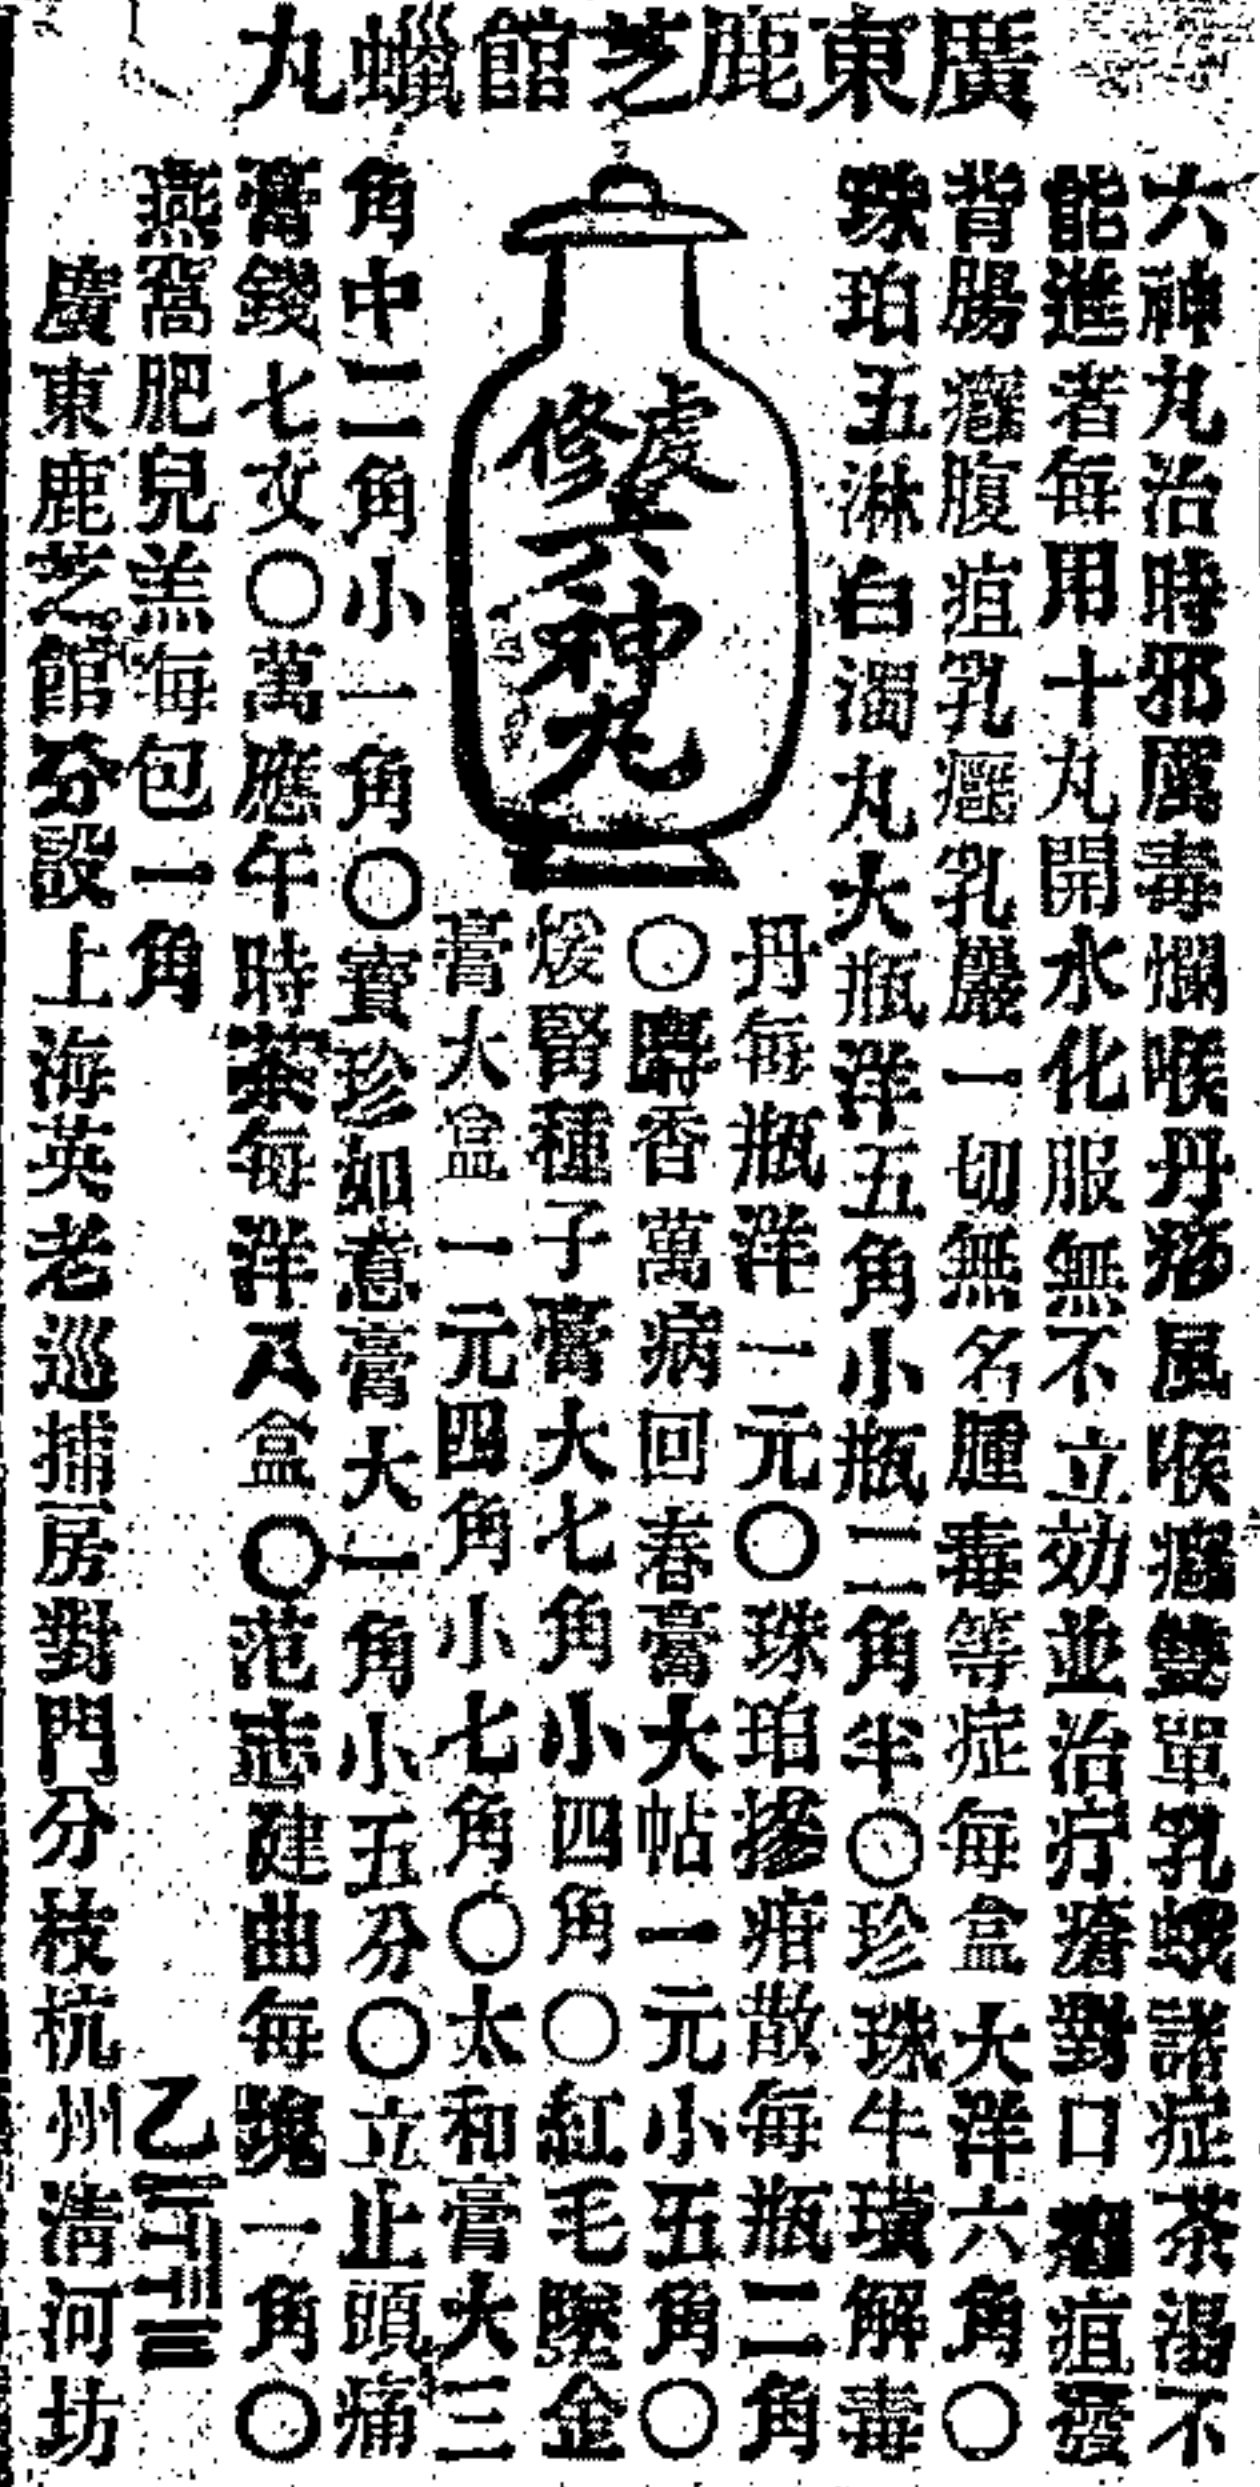 廣東鹿芝館蠟丸
六神丸治時邪厲毒爛喉丹痧風喉癰雙單乳蛾諸症茶湯不
能進者每用十丸開水化服無不立効並治疔瘡對口癰疽發
背腸癰腹疽乳癰乳巖一切無名腫毒等症每盒大洋六角〇
珠珀五淋白濁丸大瓶洋五角小瓶二角半〇珍珠牛璜解毒
丹每瓶洋一元〇珠珀摻疳散每瓶二角
〇麝香萬病回春膏大帖一元小五角〇
煖腎種子膏大七角小四角〇紅毛墜金
膏大盒一元四角小七角〇太和膏大三
角中二角小一角〇寶珍如意膏大一角小五分〇立止頭痛
膏錢七文〇萬應午時茶每洋八盒〇范志建曲每塊一角〇
燕窩肥兒羔每包一角
廣東鹿芝館分設上海英老巡捕房對門分枝杭州清河坊
虔修
六神丸